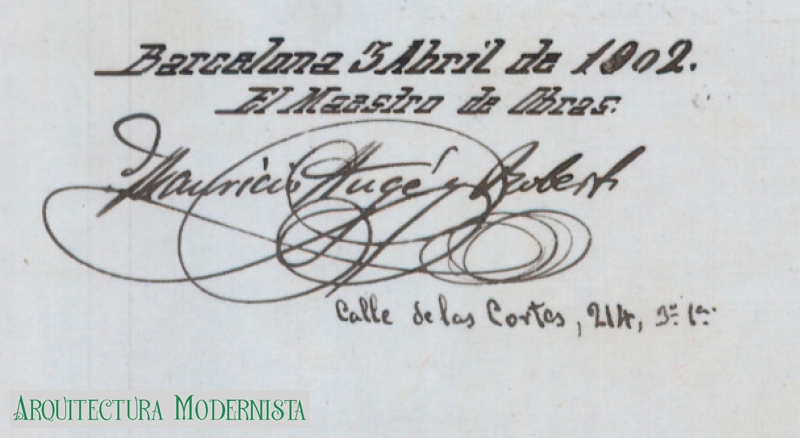 Barcelona 3 Abril de 1902.
El Maestro de Obras.
Mauricio Augé y Robert
Calle de las Cortes, 214, 3º 1ª
ARQUITECTURA MODERNISTA